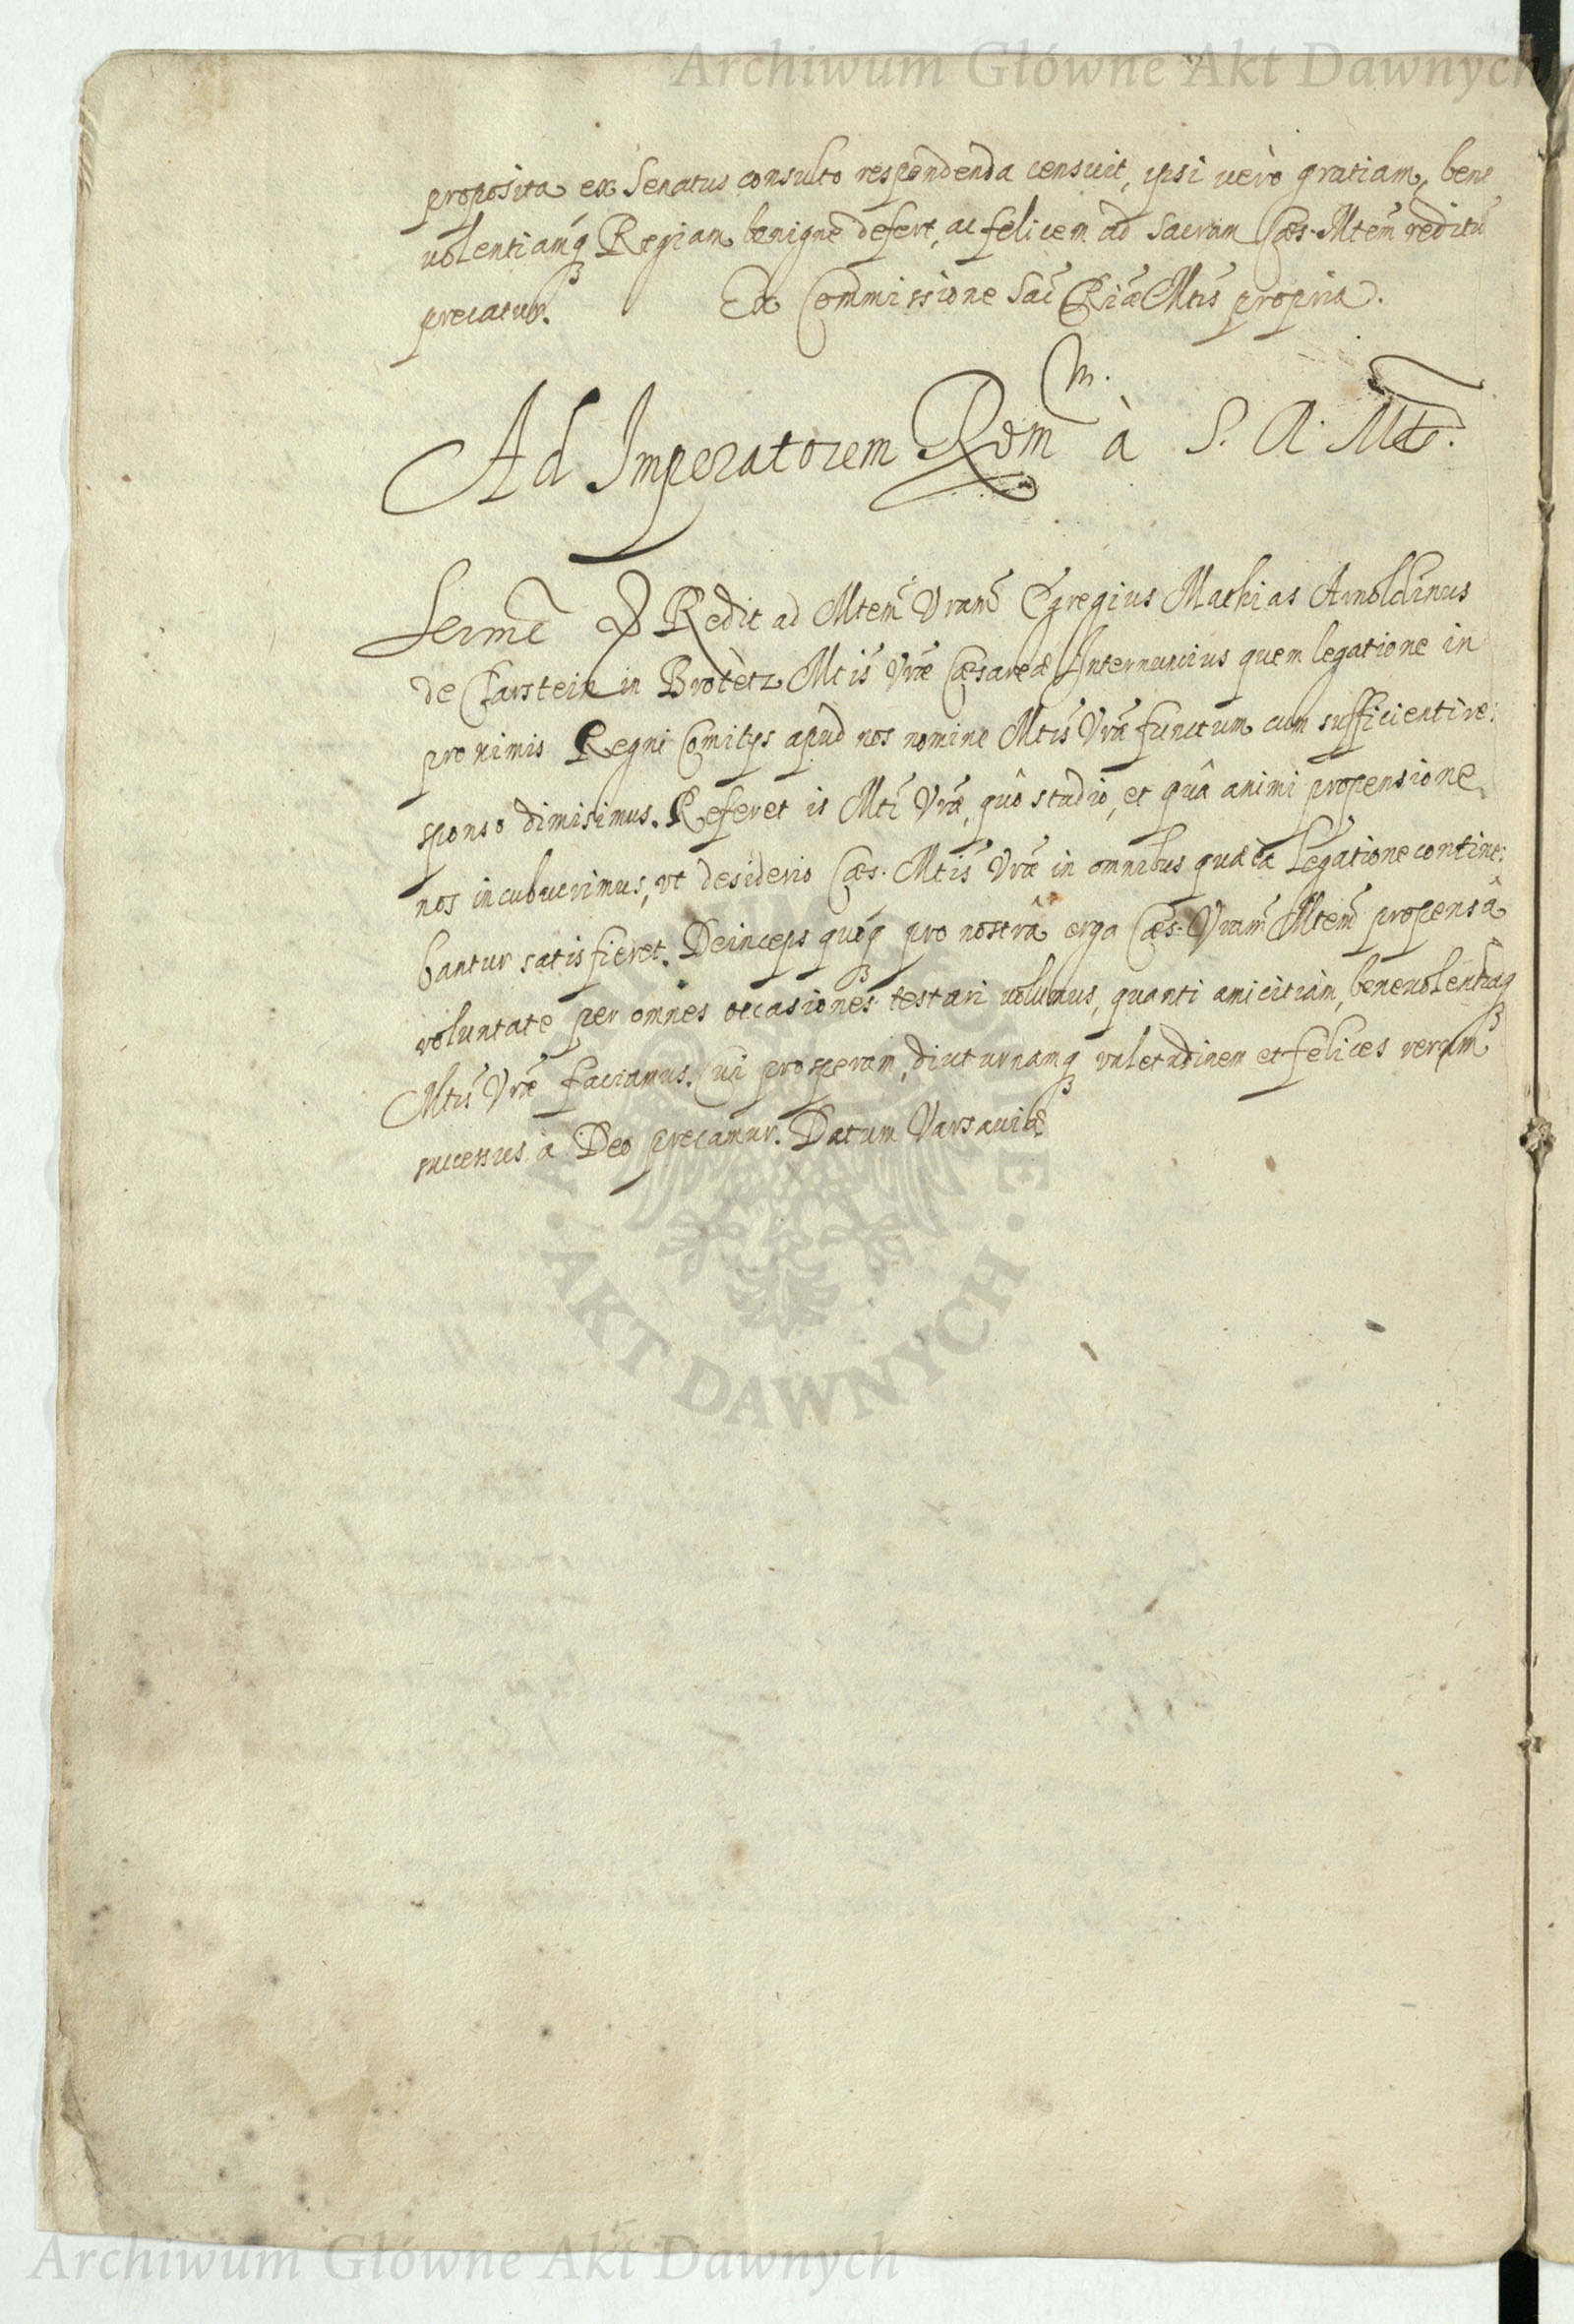 Archiwum Główne Akt Dawnych
proposita ex Senatus consulto respondenda censuit, ipsi verò gratiam, bene
volentiamq́ Regiam benigne defert, ac felicem ad Sacram Cæs. Mtem̃ reditũ
precatur. Ex Commissione Sac̃ Riæ Mtis̃ propria.
Ad Imperatorem Rom m. à S. R. Mte.
Sermẽ Redit ad Mtem̃ Vram̃ Egregius Mathias Arnoldinus
de Clarstein in Brotetz Mtis̃ Vræ Cæsareæ Internuncius quem legatione in
proximis Regni Comitijs apud nos nomine Mtis̃ Vræ functum cum sufficienti re:
sponso dimisimus. Referet is Mti Vræ, quô studio, et quâ animi propensione
nos incubuerimus, vt desiderio Cæs. Mtis̃ Vræ in omnibus quæ ea Legatione contine:
bantur satisfieret. Deinceps quoq́ pro nostrâ erga Cæs. Vram̃ Mtem̃ propensâ
voluntate per omnes occasiones testari volumus, quanti amicitiam, benevolentiaq́
Mtis̃ Vræ faciamus. Cui prosperam, diuturnamq́ valetudinem et felices rerum
successus à Deo precamur. Datum Varsaviæ
AKT DAWNYCH
Archiwum Główne Akt Dawnych